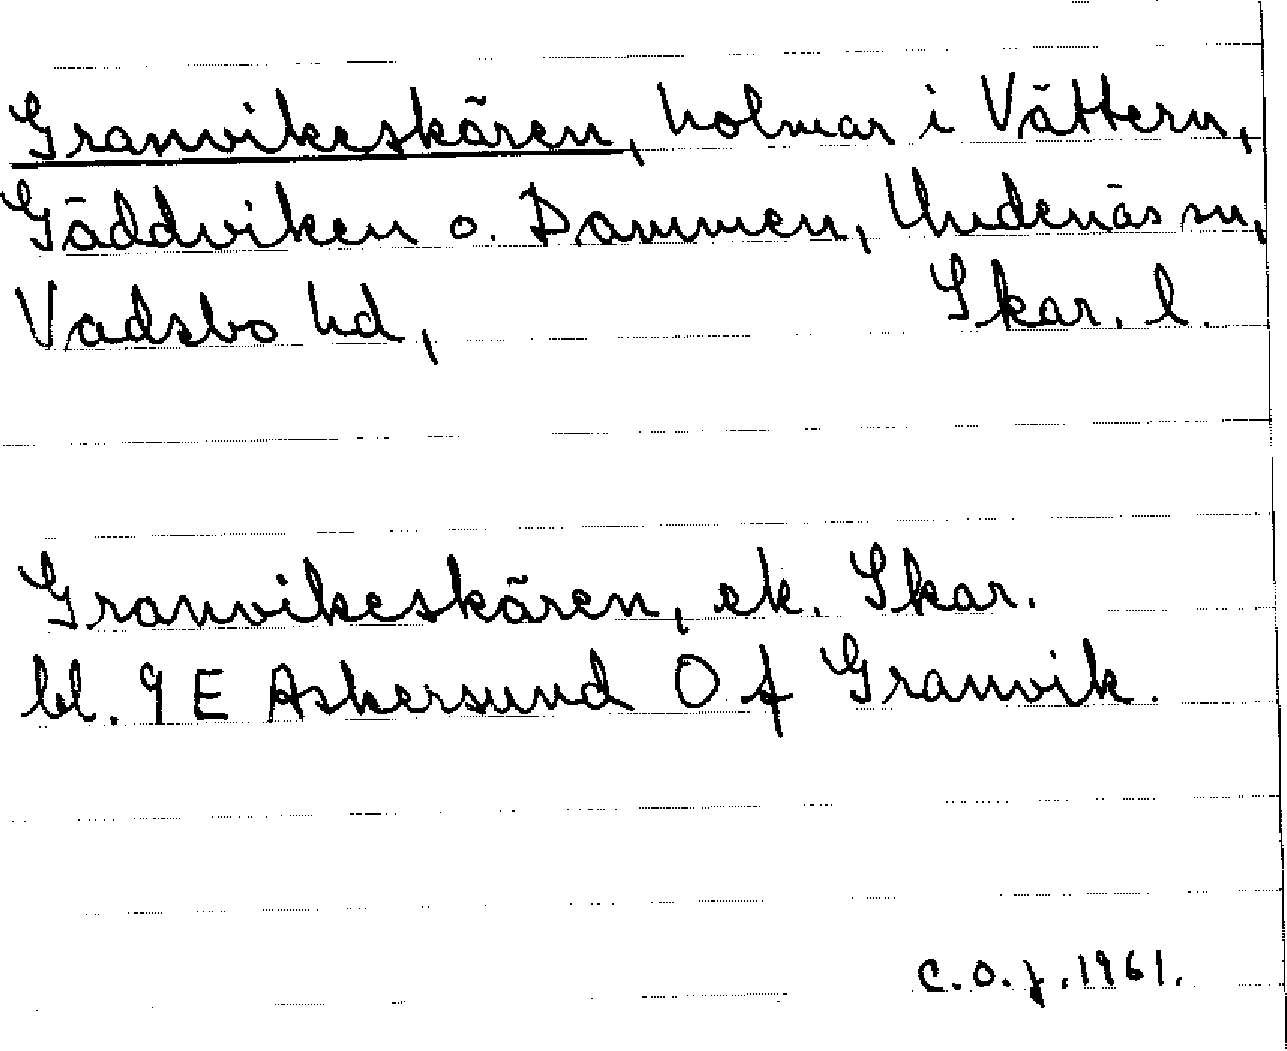 Granvikeskären, holmar i Vättern,
Gäddviken o. Dammen, Undenäs sn,
Vadsbo hd, Skar. l.
Granvikeskären, ek. Skar.
bl. 9 E Askersund O f Granvik.
C.O.J. 1961.